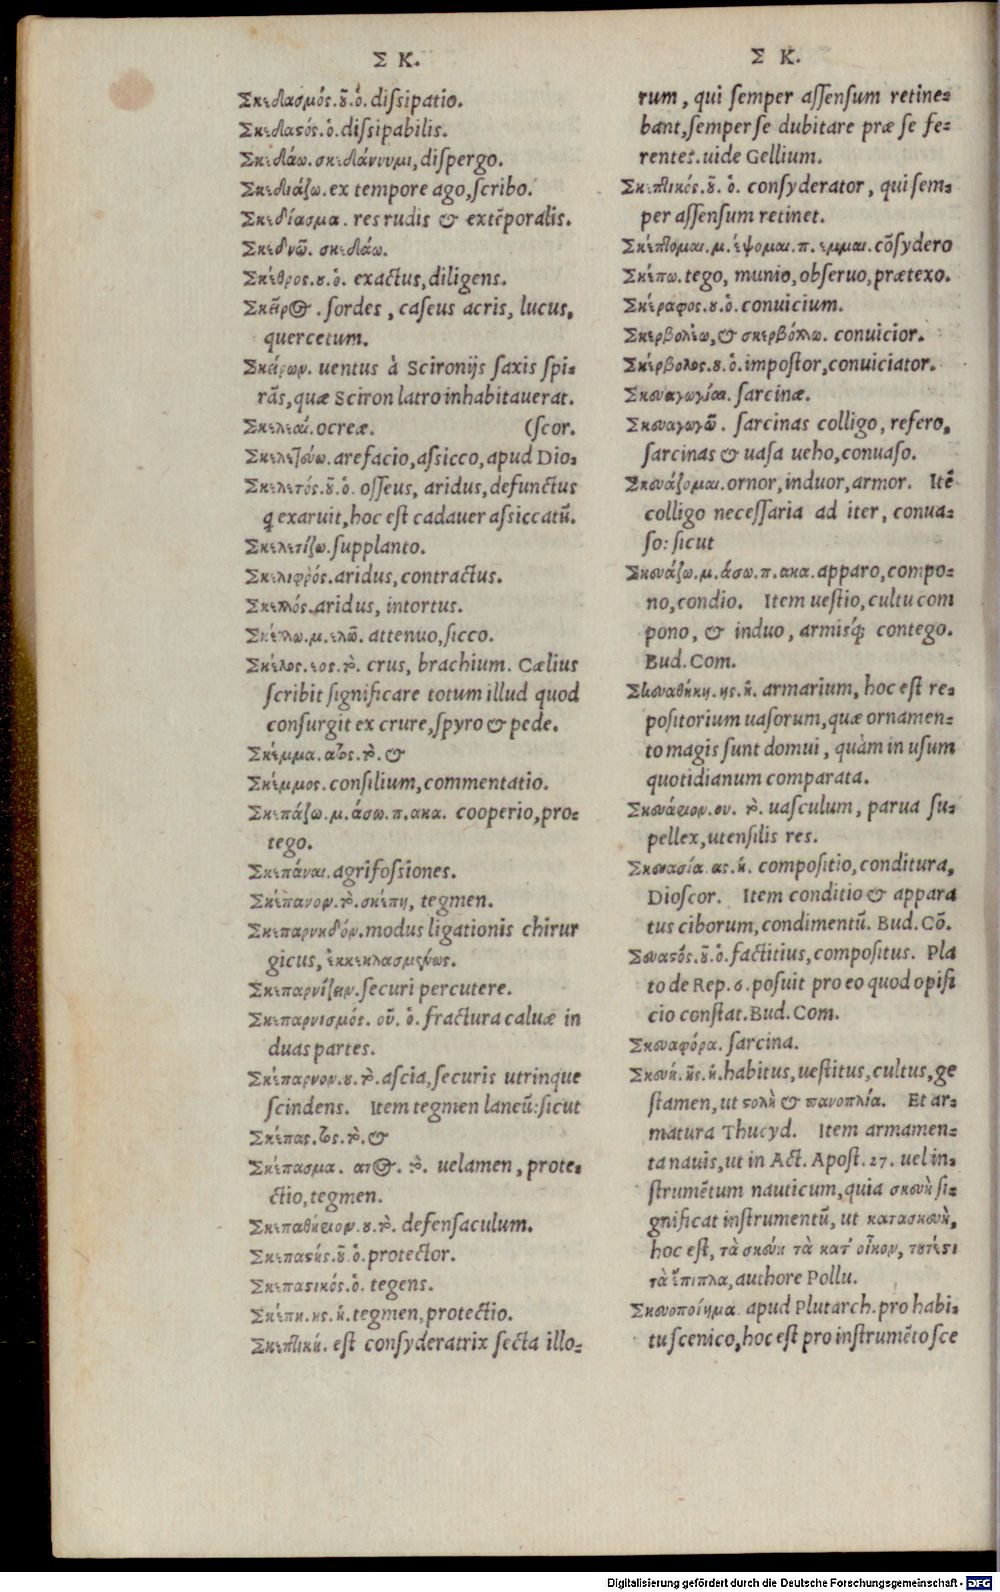 Σ Κ.
Σκεδασμός.οῦ.ὁ.dissipatio.
Σκεδαστός.ὁ.dissipabilis.
Σκεδάω.σκεδάννυμι,dispergo.
Σκεδιάζω.ex tempore ago,scribo.
Σκεδίασμα.res rudis & extẽporalis.
Σκεδνῶ.σκεδάω.
Σκέθρος.ου.ὁ. exactus,diligens.
Σκεῖρος.sordes, caseus acris, lucus,
quercetum.
Σκείρων.uentus à Scironijs saxis spi=
rãs,quæ Sciron latro inhabitauerat.
Σκελεαί.ocreæ. (scor.
Σκελετεύω.arefacio,assicco,apud Dio=
Σκελετός.οῦ.ὁ. osseus, aridus,defunctus
q exaruit,hoc est cadauer assiccatũ.
Σκελετίζω.supplanto.
Σκελιφρός.aridus,contractus.
Σκελλός.aridus, intortus.
Σκέλλω.μ.ελῶ. attenuo,sicco.
Σκέλος.εος.τὸ. crus, brachium. Cælius
scribit significare totum illud quod
consurgit ex crure,spyro & pede.
Σκέμμα.ατος.τὸ. &
Σκέμμος.consilium,commentatio.
Σκεπάζω.μ.άσω.π.ακα. cooperio,pro=
tego.
Σκεπάναι.agrifossiones.
Σκέπανον.τὸ.σκέπη, tegmen.
Σκεπαρνηδόν.modus ligationis chirur
gicus, ἐκκεκλασμένως.
Σκεπαρνίζειν.securi percutere.
Σκεπαρνισμός. οῦ. ὁ. fractura caluæ in
duas partes.
Σκέπαρνον.ου.τὸ.ascia,securis utrinque
scindens. Item tegmen laneũ:sicut
Σκέπας.τος.τὸ. &
Σκέπασμα. ατος. τὸ. uelamen, prote=
ctio,tegmen.
Σκεπαθήριον.ου.τὸ. defensaculum.
Σκεπαστής.οῦ.ὁ.protector.
Σκεπαστικός.ὁ. tegens.
Σκέπη.ης.ἡ.tegmen,protectio.
Σκεπτική. est consyderatrix secta illo=
Σ Κ.
rum, qui semper assensum retine=
bant,semper se dubitare præ se fe=
rentes.uide Gellium.
Σκεπτικός.οῦ. ὁ. consyderator, qui sem=
per assensum retinet.
Σκέπτομαι.μ.έψομαι.π.εμμαι.cõsydero
Σκέπω.tego, munio,obseruo,prætexo.
Σκέραφος.ου.ὁ.conuicium.
Σκερβολέω,& σκερβόλλω. conuicior.
Σκέρβολος.ου.ὁ.impostor,conuiciator.
Σκευαγωγίαι.sarcinæ.
Σκευαγωγῶ. sarcinas colligo, refero,
sarcinas & uasa ueho,conuaso.
Σκευάζομαι.ornor,induor,armor. Itẽ
colligo necessaria ad iter, conua=
so:sicut
Σκευάζω.μ.άσω.π.ακα.apparo,compo=
no,condio. Item uestio,cultu com
pono, & induo, armisq; contego.
Bud.Com.
Σκευαθήκη.ης.ἡ. armarium, hoc est re=
positorium uasorum,quæ ornamen=
to magis sunt domui, quàm in usum
quotidianum comparata.
Σκευάριον.ου. τὸ. uasculum, parua su=
pellex,utensilis res.
Σκευασία.ας.ἡ. compositio,conditura,
Dioscor. Item conditio & appara
tus ciborum,condimentũ. Bud.Cõ.
Σευαστός.οῦ.ὁ.factitius,compositus. Pla
to de Rep.6.posuit pro eo quod opifi
cio constat.Bud.Com.
Σκευαφόρα. sarcina.
Σκευή.ῆς.ἡ.habitus,uestitus,cultus,ge
stamen,ut στολὴ & πανοπλία. Et ar=
matura Thucyd. Item armamen=
ta nauis,ut in Act.Apost.27.uel in=
strumẽtum nauticum,quia σκευὴ si=
gnificat instrumentũ, ut κατασκευὴ,
hoc est, τὰ σκεύη τὰ κατ' οἶκον, τουτέστι
τὰ ἔπιπλα, authore Pollu.
Σκευοποίημα. apud Plutarch.pro habi=
tu scenico,hoc est pro instrumẽto sce
Digitalisierung gefördert durch die Deutsche Forschungsgemeinschaft - DFG